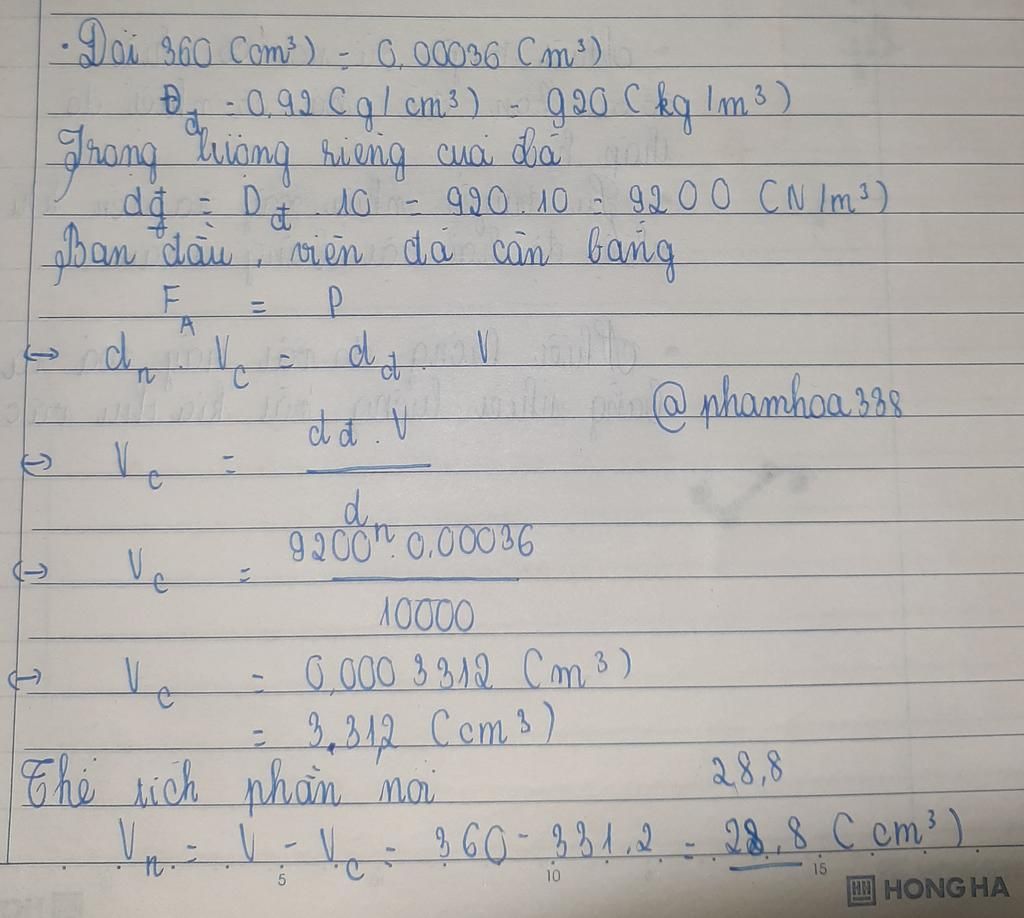 . Đổi 360 (cm³) = 0,00036 (m³)
Đđ = 0,92 (g/cm³) = 920 (kg/m³)
Trọng lượng riêng của đá
dđ = Dđ . 10 = 920.10 = 9200 (N/m³)
Ban đầu, viên đá cân bằng
FA = P
<=> dn . Vc = dđ . V
@phamhoa338
<=> Vc = dđ . V
dn
<=> Vc = 9200 . 0,00036
10000
<=> Vc = 0,0003312 (m³)
= 3.31,2 (cm³)
Thể tích phần nổi
28,8
Vn = V - Vc = 360 - 331,2 = 28,8 (cm³)
5 10 15
HH HONG HA